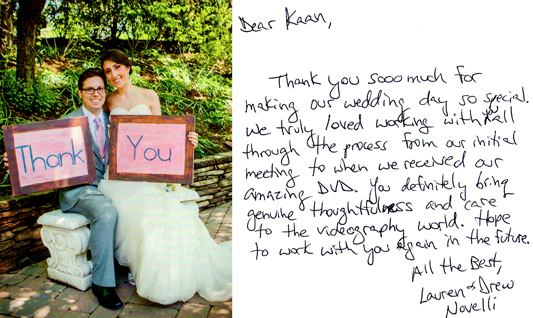 Thank You
Dear Kaan,
Thank you sooo much for
making our wedding day so special.
We truly loved working with you all
through the process from our initial
meeting to when we received our
amazing DVD. You definitely bring
genuine thoughtfulness and care
to the videography world. Hope
to work with you again in the future.
All the Best,
Lauren & Drew
Novelli